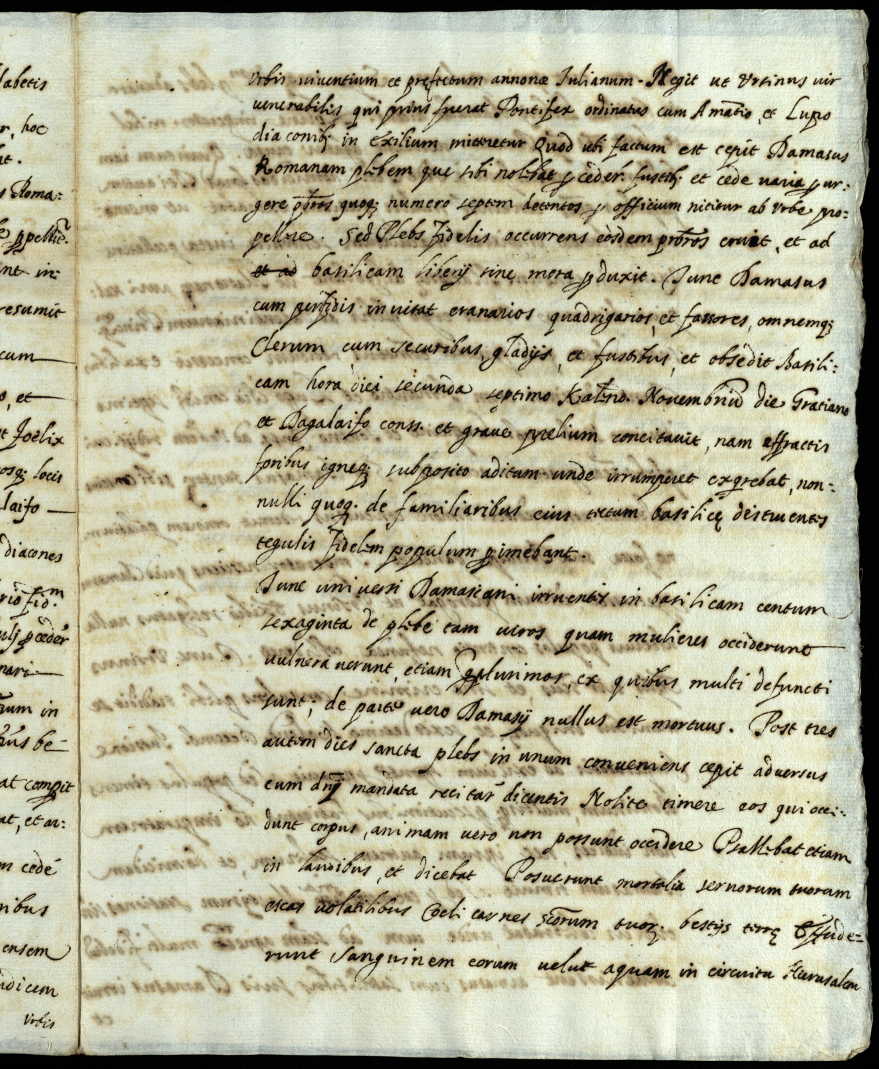 labetis
r, hoc
it.
s Roma:
e ꝓpellit.
nt in:
resumit
cum
o, et
t foelix
osq; locis
laifo
diacones
rio fid.m
ulj ꝓcedér
nari
rum in
hús be
at compit
at, et ar:
m cedé
nibus
ensem
ndicem
Urbis
Urbis viventium et prefectum annonæ Iulianum. Negit ut Ursinus vir
venerabilis qui prius fuerat Pontifex ordinatus cum Amãtio, et Lupo
diaconib; in exilium mitteretur Quod ubi factum est cepit Damasus
Romanam plebem que sibi nolebat ꝓcèder. fustib; et cede varia ꝑur:
gere pr̃bros quoq; numero septem detentos ꝑ officium nititur ab Urbe pro:
pellere. Sed Plebs fidelis occurrens eosdem prb̃ros eruit, et ad
et ad basilicam liberij sine mora ꝑduxit. Tunc Damasus
cum perfidis invitat eranarios quadrigarios, et fossores, omnemq;
Clerum cum securibus, gladijs, et fustibus, et obsedit Basili:
cam hora diei secunda septimo Kalend. Novembriũ die Gratiano
et Dagalaifo conss. et grave prelium concitavit, nam effractis
foribus igneq; subposito aditum unde irrumperet exqrebat, non:
nulli quoq. de familiaribus eius tectum basilicę destruentes
tegulis fidelem populum ꝑimebant.
Tunc universi Damasiani irruentes in basilicam centum
sexaginta de plebe tam viros quam mulieres occiderunt
vulnera verunt, etiam q̃plurimos, ex quibus multi defuncti
sunt; de parte vero Damasij nullus est mortuus. Post tres
autem dies sancta plebs in unum conveniens cepit adversus
eum dnj mandata recitar̃ dicentis Nolite timere eos qui occi:
dunt corpus, animam vero non possunt occidere Psallebat etiam
in laudibus, et dicebat Posuerunt mortalia servorum tuorum
escas volatilibus Coeli carnes sc̃torum tuor; bestijs terrę Effude:
runt sanguinem eorum velut aquam in circuitu Hierusalem